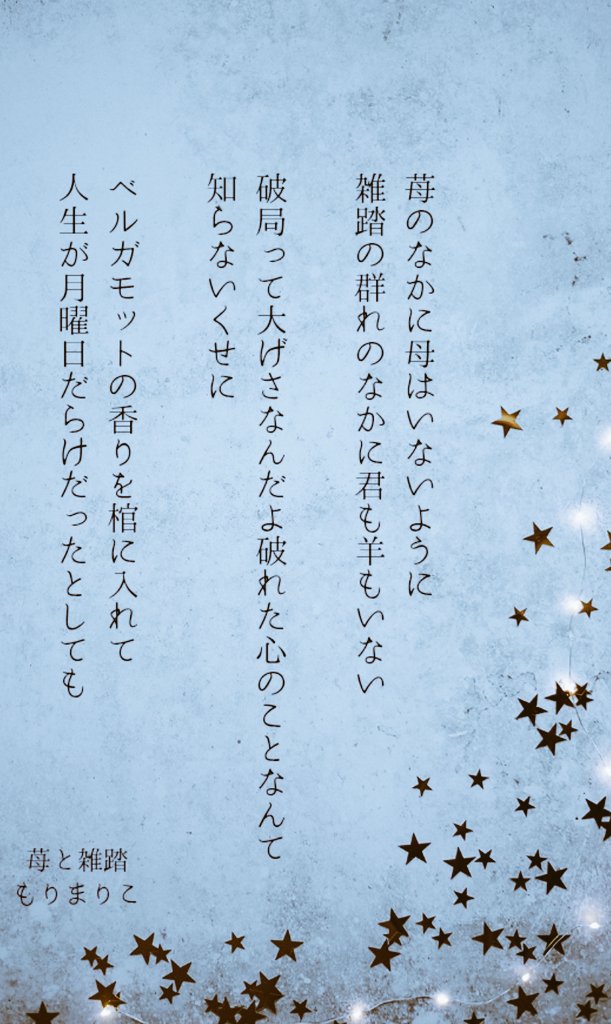 苺のなかに母はいないように
雑踏の群れのなかに君も羊もいない
破局って大げさなんだよ破れた心のことなんて
知らないくせに
ベルガモットの香りを棺に入れて
人生が月曜日だらけだったとしても
苺と雑踏
もりまりこ